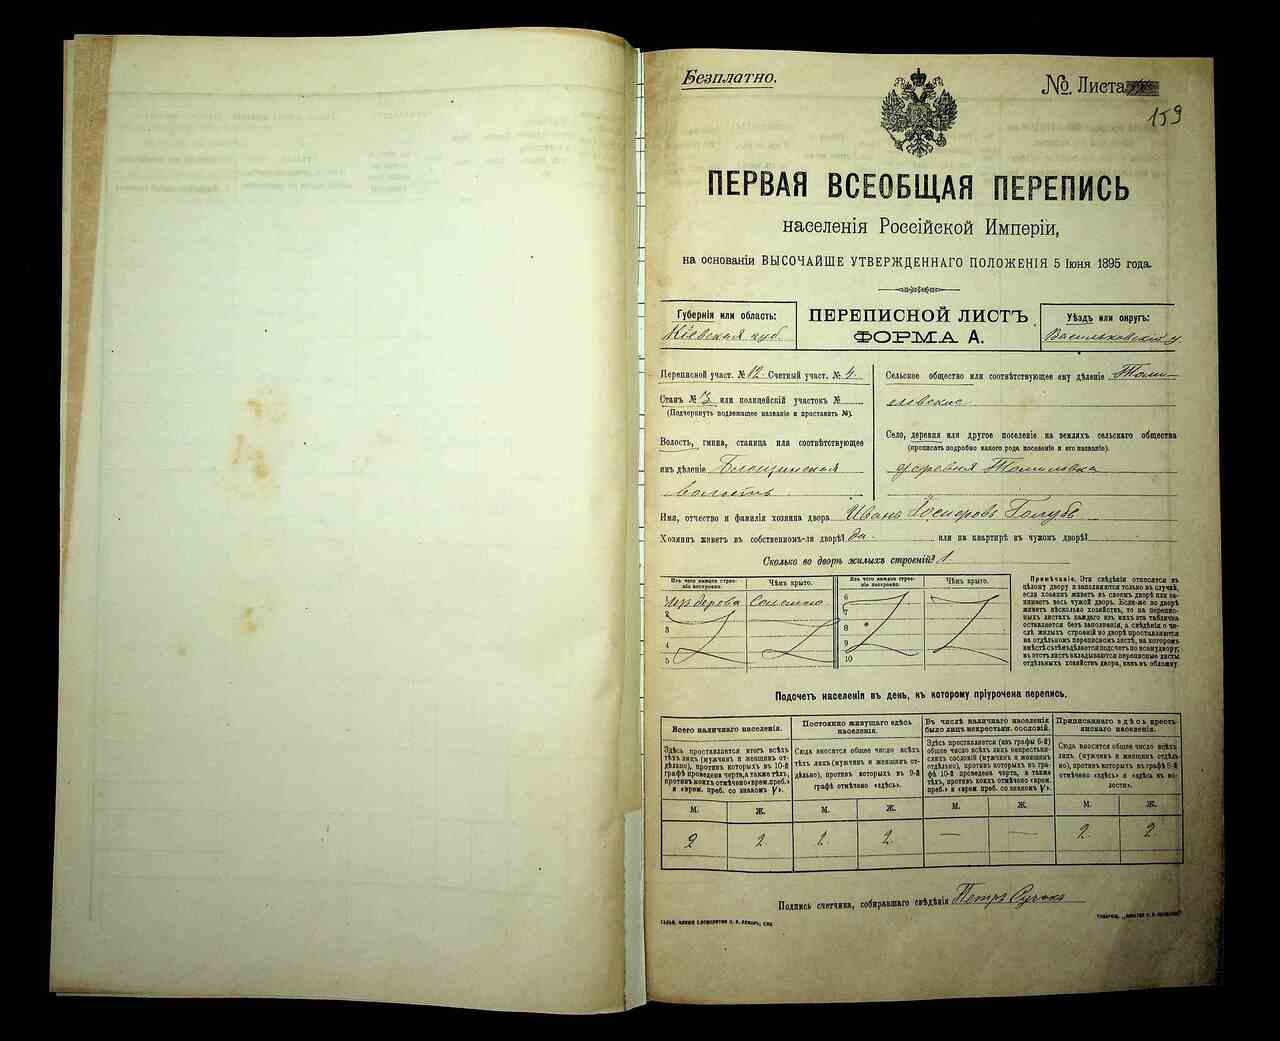 Безплатно.
№. Листа
159
ПЕРВАЯ ВСЕОБЩАЯ ПЕРЕПИСЬ
населенія Россійской Имперіи,
на основаніи ВЫСОЧАЙШЕ УТВЕРЖДЕННАГО ПОЛОЖЕНІЯ 5 Іюня 1895 года.
Губернія или область:
Кіевская губ.
ПЕРЕПИСНОЙ ЛИСТЪ
ФОРМА А.
Уѣздъ или округъ:
Васильковскій у
Переписной участ. № 12. Счетный участ. № 4.
Станъ № 3 или полицейскій участокъ №
(Подчеркнуть подлежащее названіе и проставить №).
Волость, гмина, станица или соотвѣтствующее
имъ дѣленіе
волость
Сельское общество или соотвѣтствующее ему дѣленіе Томи-
ловское
Село, деревня или другое поселеніе на земляхъ сельскаго общества
(прописать подробно какого рода поселеніе и его названіе).
деревня Томиловка
Имя, отчество и фамилія хозяина двора Ивана Голубъ
Хозяинъ живетъ въ собственномъ-ли дворѣ? да. или на квартирѣ въ чужомъ дворѣ?
Сколько во дворѣ жилыхъ строеній? 1
Изъ чего каждое строе-
ніе построено.
Чѣмъ крыто.
Изъ чего каждое строе-
ніе построено.
Чѣмъ крыто.
изъ дерева Соломою
2
3
4
5
6
7
8
9
10
Примѣчаніе. Эти свѣдѣнія относятся къ
цѣлому двору и заполняются только въ случаѣ,
если хозяинъ живетъ въ своемъ дворѣ или за-
нимаетъ весь чужой дворъ. Если-же во дворѣ
живетъ нѣсколько хозяйствъ, то на перепис-
ныхъ листахъ каждаго изъ нихъ эта таблична
оставляется безъ заполненія, а свѣдѣнія о чи-
слѣ жилыхъ строеній во дворѣ проставляются
на отдѣльномъ переписномъ листѣ, на которомъ
вмѣстѣ съ тѣмъ дѣлается подсчетъ по всему двору;
въ этотъ листъ вкладываются переписные листы
отдѣльныхъ хозяйствъ двора, какъ въ обложку.
Подсчетъ населенія въ день, къ которому пріурочена перепись.
Всего наличнаго населенія.
Здѣсь проставляется итогъ всѣхъ
тѣхъ лицъ (мужчинъ и женщинъ от-
дѣльно), противъ которыхъ въ 10-й
графѣ проведена черта, а также тѣхъ,
противъ коихъ отмѣчено «врем. преб.»
и «врем. преб. со знакомъ V».
Постоянно живущаго здѣсь
населенія.
Сюда вносится общее число всѣхъ
тѣхъ лицъ (мужчинъ и женщинъ от-
дѣльно), противъ которыхъ въ 9-й
графѣ отмѣчено «здѣсь».
Въ числѣ наличнаго населенія
было лицъ некрестьян. сословій.
Здѣсь проставляется (изъ графы 6-й)
общее число всѣхъ лицъ некрестьян-
скихъ сословій (мужчинъ и женщинъ
отдѣльно), противъ которыхъ въ гра-
фѣ 10-й проведена черта, а также
тѣхъ, противъ коихъ отмѣчено «врем.
преб.» и «врем. преб. со знакомъ V».
Приписаннаго здѣсь кресть-
янскаго населенія.
Сюда вносится общее число всѣхъ
лицъ (мужчинъ и женщинъ отдѣль-
но), противъ которыхъ въ графѣ 8-й
отмѣчено «здѣсь» и «здѣсь въ во-
лости».
М. Ж. М. Ж. М. Ж. М. Ж.
2 2 2 2 — — 2 2
Подпись счетчика, собиравшаго свѣдѣнія Петръ